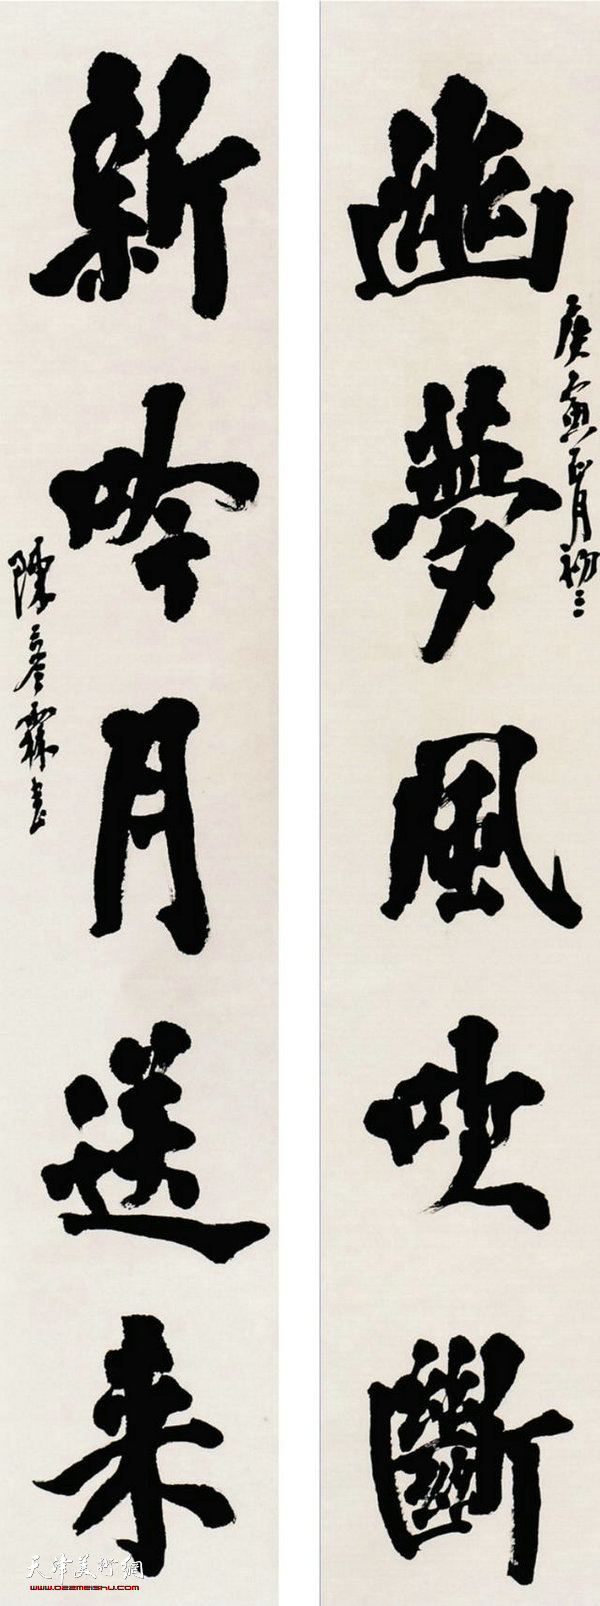 幽夢風吹斷
庚寅正月初三
新吟月送来
陳彦霖書
天津美術網
www.022meishu.com